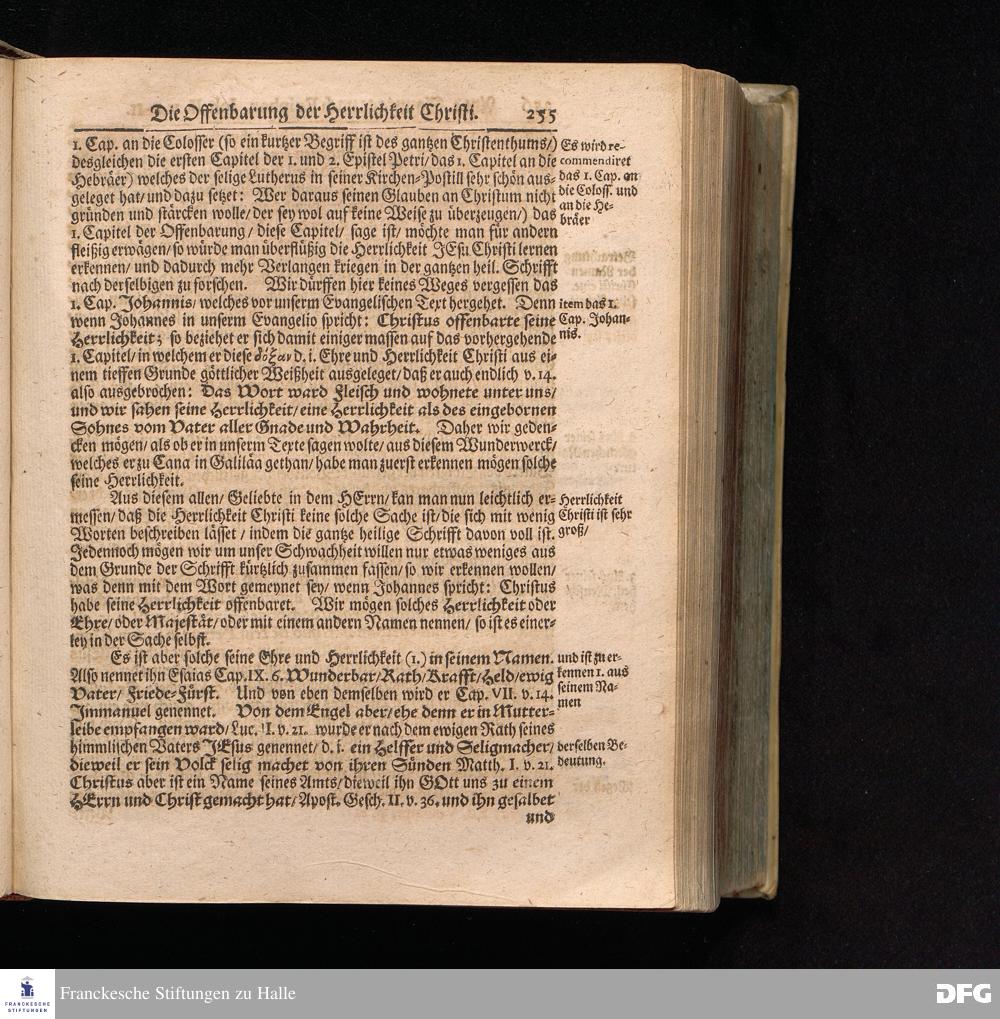 Die Offenbarung der Herrlichkeit Christi. 255
1. Cap. an die Colosser (so ein kurtzer Begriff ist des gantzen Christenthums/)
desgleichen die ersten Capitel der 1. und 2. Epistel Petri/ das 1. Capitel an die
Hebräer) welches der selige Lutherus in seiner Kirchen-Postill sehr schön aus-
geleget hat/ und dazu setzet: Wer daraus seinen Glauben an Christum nicht
gründen und stärcken wolle/ der sey wol auf keine Weise zu überzeugen/) das
1. Capitel der Offenbarung/ diese Capitel/ sage ist/ möchte man für andern
fleißig erwägen/ so würde man überflüßig die Herrlichkeit JEsu Christi lernen
erkennen/ und dadurch mehr Verlangen kriegen in der gantzen heil. Schrifft
nach derselbigen zu forschen. Wir dürffen hier keines Weges vergessen das
1. Cap. Johannis/ welches vor unserm Evangelischen Text hergehet. Denn
wenn Johannes in unserm Evangelio spricht: Christus offenbarte seine
Herrlichkeit; so beziehet er sich damit einiger massen auf das vorhergehende
1. Capitel/ in welchem er diese δόξαν d. i. Ehre und Herrlichkeit Christi aus ei-
nem tieffen Grunde göttlicher Weißheit ausgeleget/ daß er auch endlich v. 14.
also ausgebrochen: Das Wort ward Fleisch und wohnete unter uns/
und wir sahen seine Herrlichkeit/ eine Herrlichkeit als des eingebornen
Sohnes vom Vater aller Gnade und Wahrheit. Daher wir geden-
cken mögen/ als ob er in unserm Texte sagen wolte/ aus diesem Wunderwerck/
welches er zu Cana in Galiläa gethan/ habe man zuerst erkennen mögen solche
seine Herrlichkeit.
Aus diesem allen/ Geliebte in dem HErrn/ kan man nun leichtlich er-
messen/ daß die Herrlichkeit Christi keine solche Sache ist/ die sich mit wenig
Worten beschreiben lässet/ indem die gantze heilige Schrifft davon voll ist.
Jedennoch mögen wir um unser Schwachheit willen nur etwas weniges aus
dem Grunde der Schrifft kürtzlich zusammen fassen/ so wir erkennen wollen/
was denn mit dem Wort gemeynet sey/ wenn Johannes spricht: Christus
habe seine Herrlichkeit offenbaret. Wir mögen solches Herrlichkeit oder
Ehre/ oder Majestät/ oder mit einem andern Namen nennen/ so ist es einer-
ley in der Sache selbst.
Es ist aber solche seine Ehre und Herrlichkeit (1.) in seinem Namen.
Also nennet ihn Esaias Cap. IX. 6. Wunderbar/ Rath/ Krafft/ Held/ ewig
Vater/ Friede-Fürst. Und von eben demselben wird er Cap. VII. v. 14.
Immanuel genennet. Von dem Engel aber/ ehe denn er in Mutter-
leibe empfangen ward/ Luc. II. v. 21. wurde er nach dem ewigen Rath seines
himmlischen Vaters JEsus genennet/ d. i. ein Helffer und Seligmacher/
dieweil er sein Volck selig machet von ihren Sünden Matth. I. v. 21.
Christus aber ist ein Name seines Amts/ dieweil ihn GOtt uns zu einem
HErrn und Christ gemacht hat/ Apost. Gesch. II. v. 36. und ihn gesalbet
und
Es wird re-
commendiret
das 1. Cap. an
die Coloss. und
an die He-
bräer
item das 1.
Cap. Johan-
nis.
Herrlichkeit
Christi ist sehr
groß/
und ist zu er-
kennen 1. aus
seinem Na-
men
derselben Be-
deutung.
FRANCKESCHE
STIFTUNGEN
Franckesche Stiftungen zu Halle
DFG